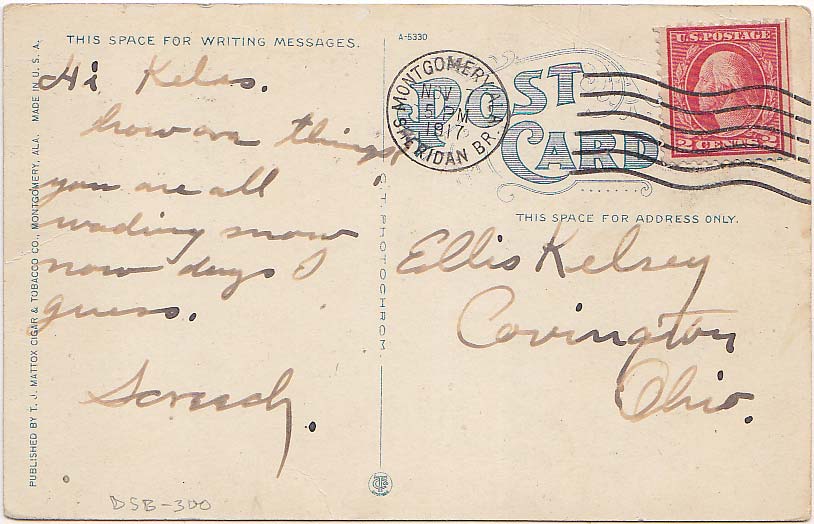 THIS SPACE FOR WRITING MESSAGES.
Hi Kels.
how are things,
you are all
wading snow
now days I
guess.
Screech.
PUBLISHED BY T. J. MATTOX CIGAR & TOBACCO CO., MONTGOMERY, ALA. MADE IN U. S. A.
C T PHOTOCHROM
DSB-300
A-5330
POST CARD
MONTGOMERY, ALA.
NOV 7
5 PM
1917
SHERIDAN BR.
U.S. POSTAGE
2 CENTS 2
THIS SPACE FOR ADDRESS ONLY.
Ellis Kelsey
Covington
Ohio.